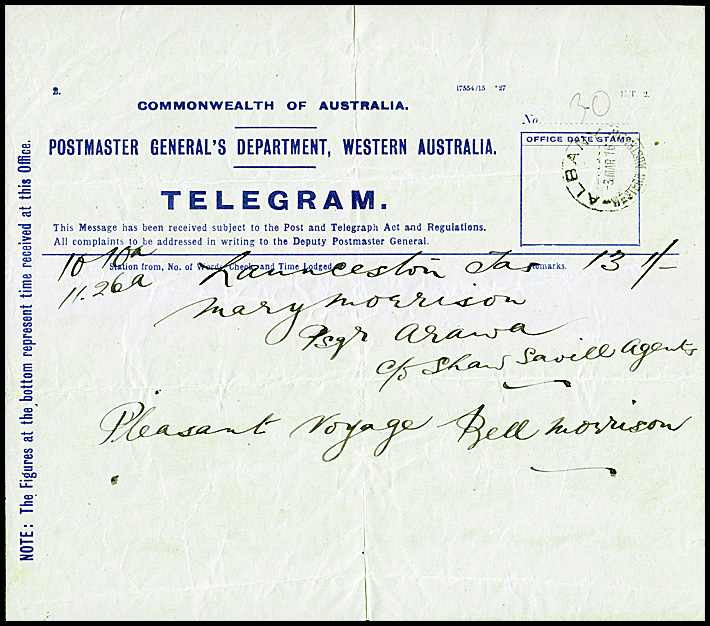 2.
17554/15 '27
COMMONWEALTH OF AUSTRALIA.
No. 30
POSTMASTER GENERAL'S DEPARTMENT, WESTERN AUSTRALIA.
OFFICE DATE STAMP
ALBANY
WESTERN AUSTRALIA
TELEGRAM.
This Message has been received subject to the Post and Telegraph Act and Regulations.
All complaints to be addressed in writing to the Deputy Postmaster General.
Station from, No. of Words, Check and Time Lodged.
Remarks.
10 10a Launceston Tas 13 1/-
11.26a
Mary Morrison
Psgr Arawa
c/o Shaw Savill Agents
Pleasant Voyage Bell Morrison
NOTE: The Figures at the bottom represent time received at this Office.